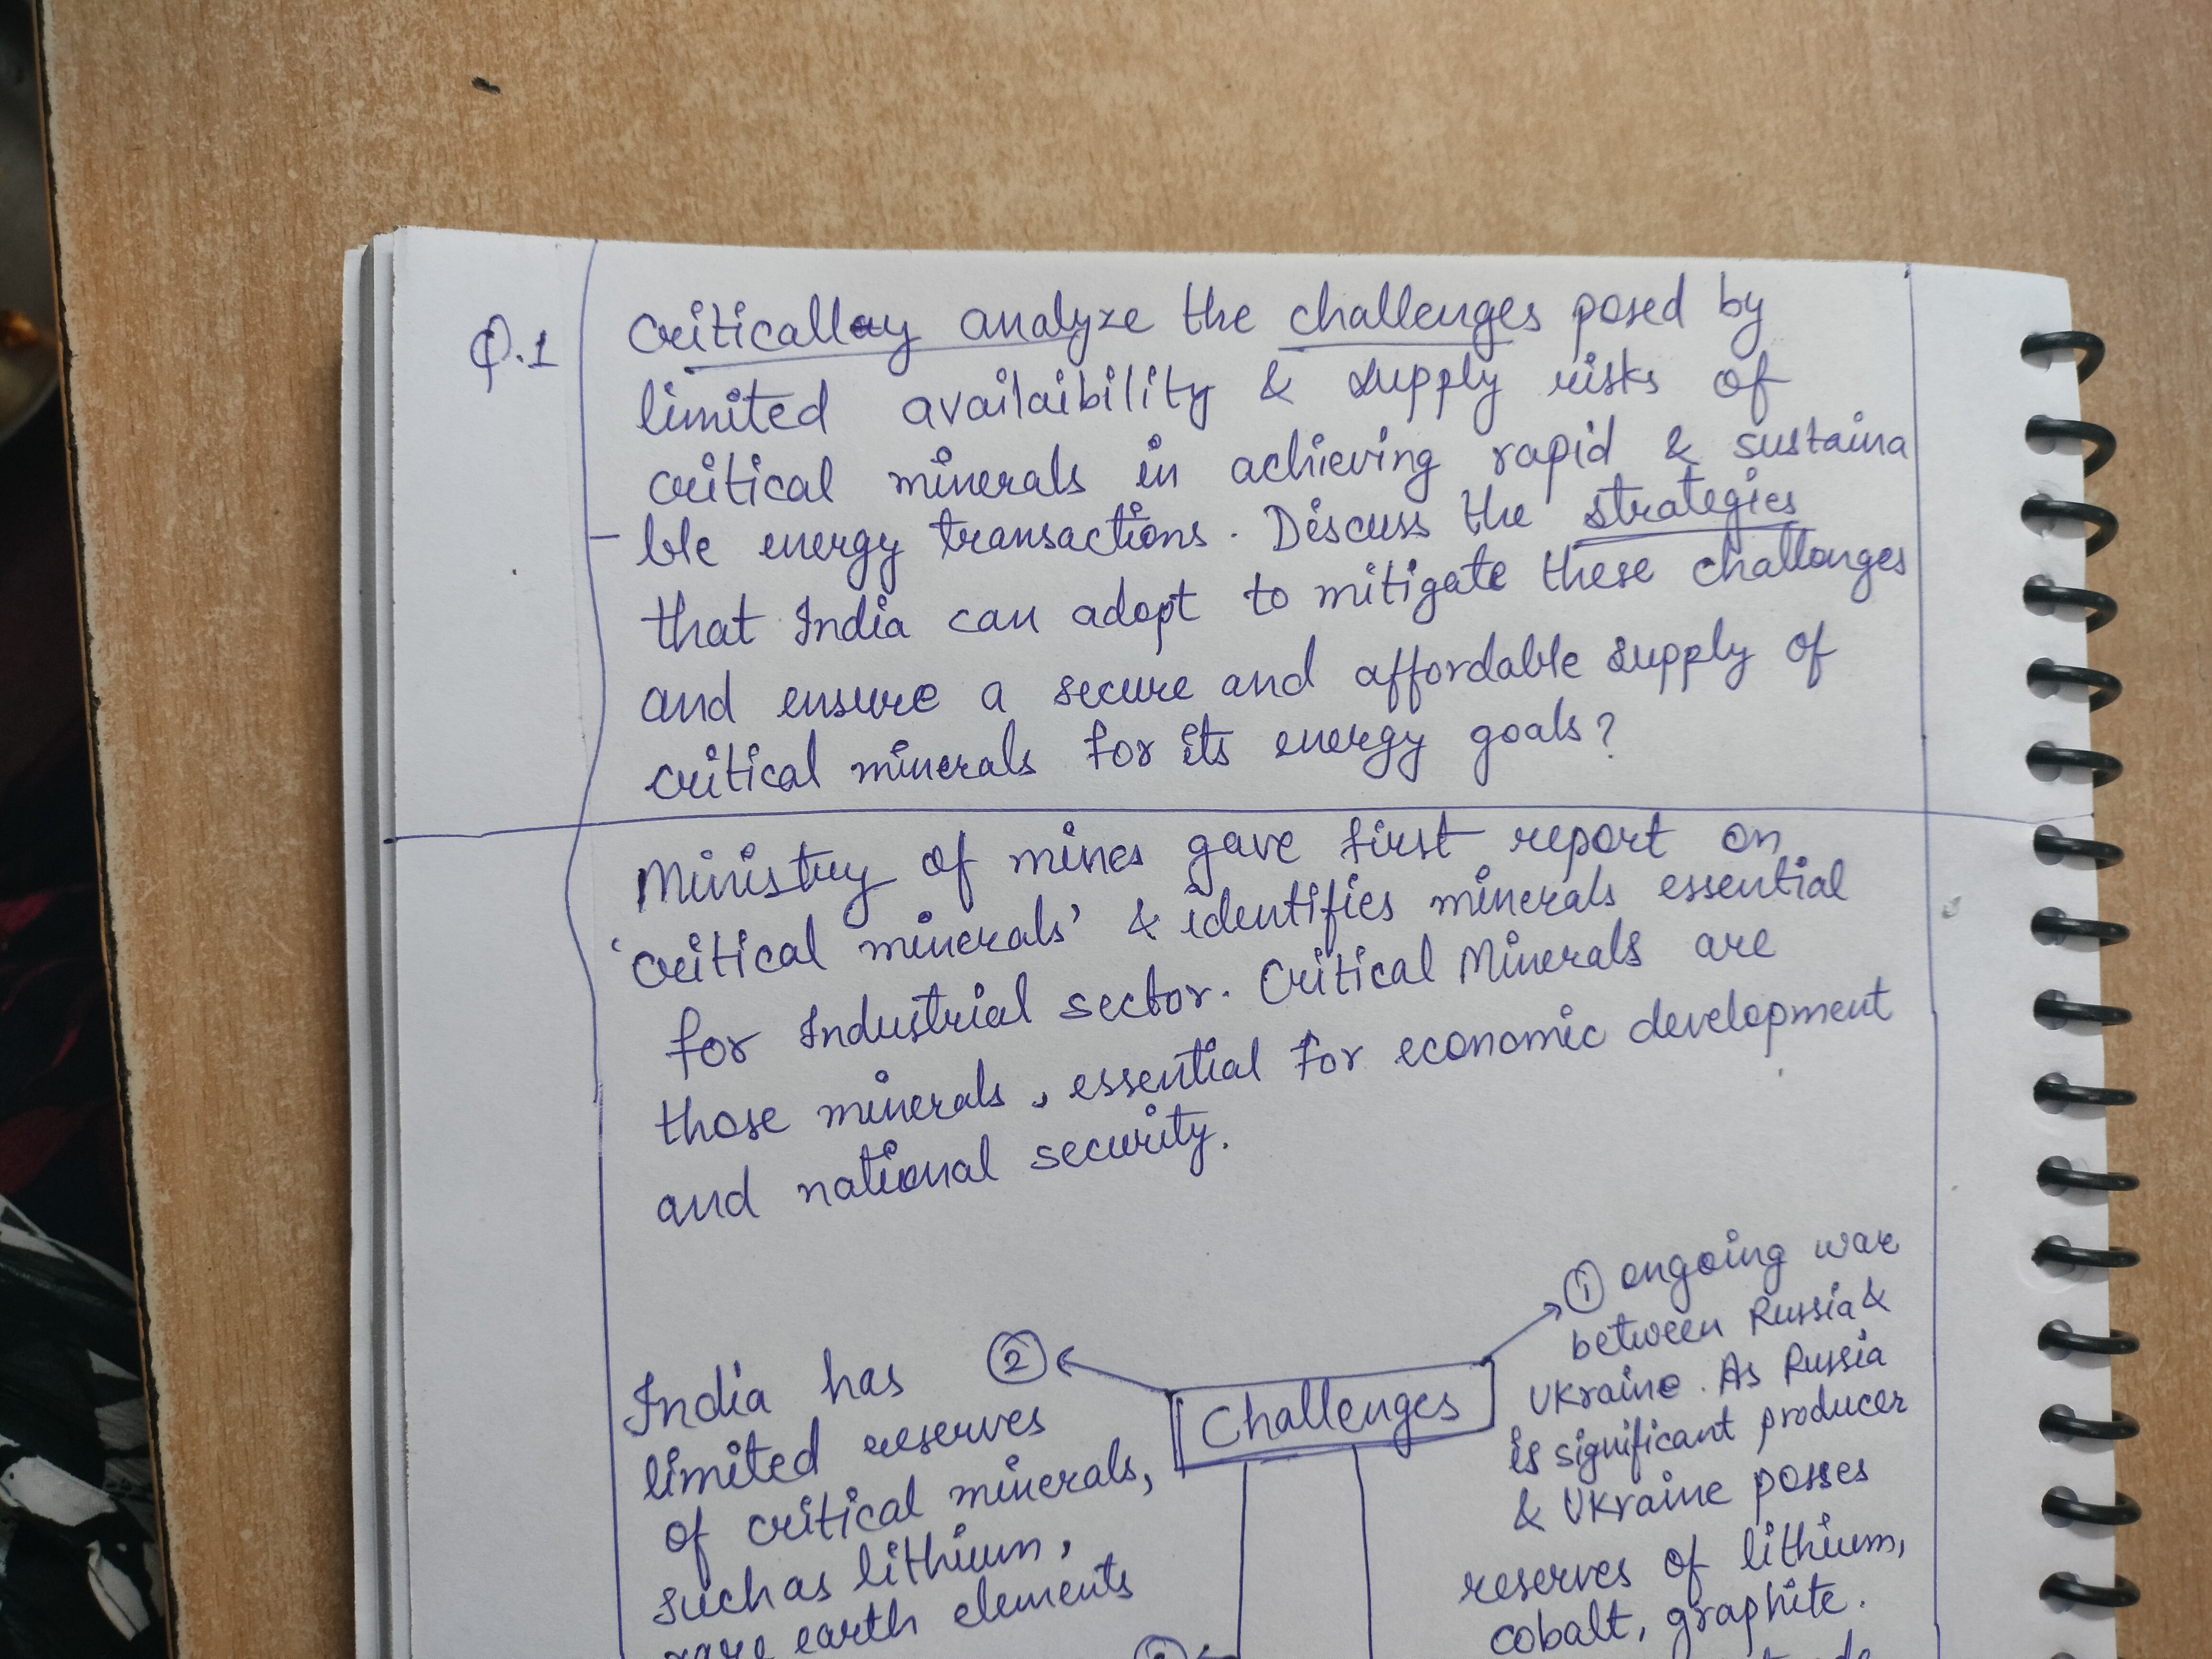 Q.1
Criticallay analyze the challenges posed by
limited availaibility & supply risks of
critical minerals in achieving rapid & sustaina
- ble energy transactions. Discuss the strategies
that India can adopt to mitigate these challenges
and ensure a secure and affordable supply of
critical minerals for its energy goals?
Ministry of mines gave first report on
'critical minerals' & identifies minerals essential
for Industrial sector. Critical Minerals are
those minerals, essential for economic development
and national security.
Challenges
① ongoing war
between Russia &
Ukraine. As Russia
is significant producer
& Ukraine posses
reserves of lithium,
cobalt, graphite.
②
India has
limited reserves
of critical minerals,
such as lithium,
rare earth elements